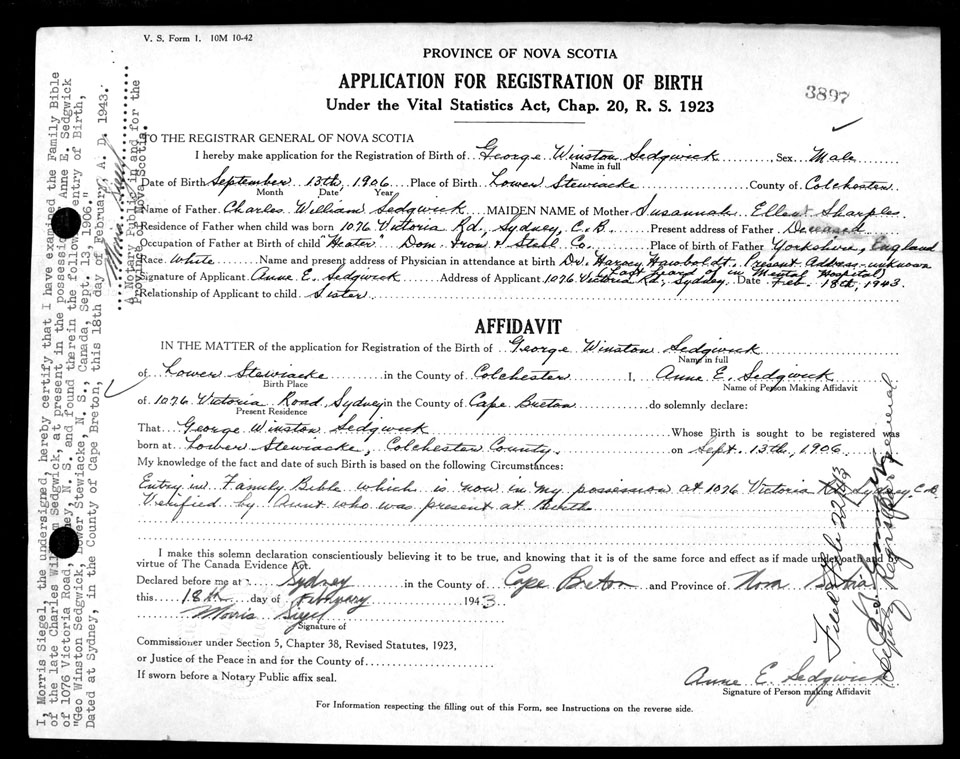 V. S. Form 1. 10M 10-42
PROVINCE OF NOVA SCOTIA
APPLICATION FOR REGISTRATION OF BIRTH
Under the Vital Statistics Act, Chap. 20, R. S. 1923
3897
TO THE REGISTRAR GENERAL OF NOVA SCOTIA
I hereby make application for the Registration of Birth of George Winston Sedgwick Sex Male
Name in full
Date of Birth September 13th, 1906 Place of Birth Lower Stewiacke County of Colchester
Month Date Year
Name of Father Charles William Sedgwick MAIDEN NAME of Mother Susannah Ellen Sharples
Residence of Father when child was born 1076 Victoria Rd, Sydney, C.B Present address of Father Deceased
Occupation of Father at Birth of child "Heater" Dom. Iron & Steel Co. Place of Birth of Father Yorkshire, England
Race White Name and present address of Physician in attendance at birth Dr. Harvey Hawboldt. Present Address-unknown
(Last heard of in Mental Hospital)
Signature of Applicant Anne E. Sedgwick Address of Applicant 1076 Victoria Rd, Sydney Date Feb. 18th, 1943.
Relationship of Applicant to child Sister
AFFIDAVIT
IN THE MATTER of the application for Registration of the Birth of George Winston Sedgwick
Name in full
of Lower Stewiacke in the County of Colchester I, Anne E. Sedgwick
Birth Place Name of Person Making Affidavit
of 1076 Victoria Road, Sydney in the County of Cape Breton do solemnly declare:
Present Residence
That George Winston Sedgwick Whose Birth is sought to be registered was
born at Lower Stewiacke, Colchester County on Sept. 13th, 1906
My knowledge of the fact and date of such Birth is based on the following Circumstances:
Entry in Family Bible which is now in my possession at 1076 Victoria Rd, Sydney, C.B.
Verified by Aunt who was present at Birth
I make this solemn declaration conscientiously believing it to be true, and knowing that it is of the same force and effect as if made under oath and by
virtue of The Canada Evidence Act.
Declared before me at Sydney in the County of Cape Breton and Province of Nova Scotia
this 18th day of February 1943
Morris Siegel
Signature of
Commissioner under Section 5, Chapter 38, Revised Statutes, 1923,
or Justice of the Peace in and for the County of
If sworn before a Notary Public affix seal.
Anne E. Sedgwick
Signature of Person making Affidavit
For Information respecting the filling out of this Form, see Instructions on the reverse side.
I, Morris Siegel, the undersigned, hereby certify that I have examined the Family Bible
of the late Charles William Sedgwick, at present in the possession Anne E. Sedgwick
of 1076 Victoria Road, Sydney, N. S. and found therein the following entry of Birth,
"Geo Winston Sedgwick, Lower Stewiacke, N. S., Canada, Sept. 13, 1906."
Dated at Sydney, in the County of Cape Breton, this 18th day of February, A. D. 1943.
Morris Siegel
A Notary Public in and for the
Province of Nova Scotia.
Filed Feb 22/43
Deputy Registrar General